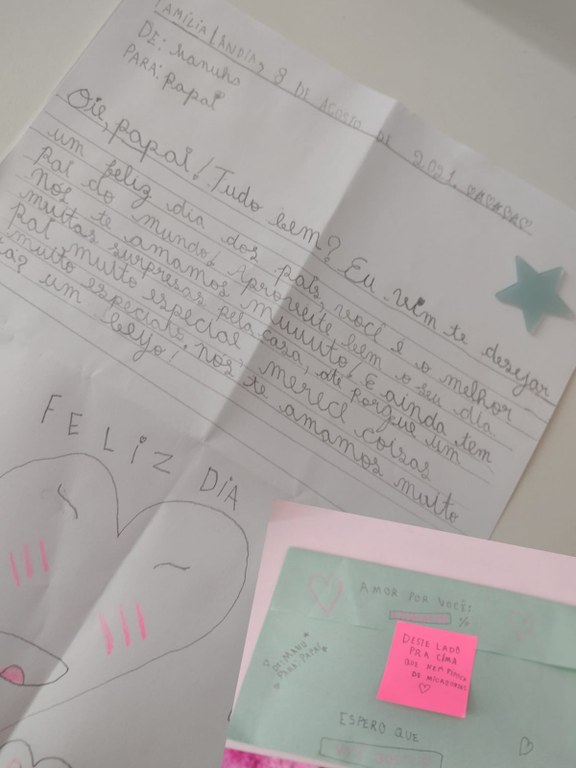 FAMÍLIALÂNDIA, 8 DE AGOSTO DE 2021.
DE: Manuho
PARA: Papai
Oie, papai! Tudo bem? Eu vim te desejar
um feliz dia dos pais, você é o melhor
pai do mundo. Aproveite bem o seu dia.
Nós te amamos muuuuto! E ainda tem
muitas surpresas pela casa, até porque um
pai muito especial merece coisas
muito especiais, nós te amamos muito
um beijo!
FELIZ DIA
AMOR POR VOCÊ:
%
DESTE LADO
PARA: PAPAI
ESPERO QUE